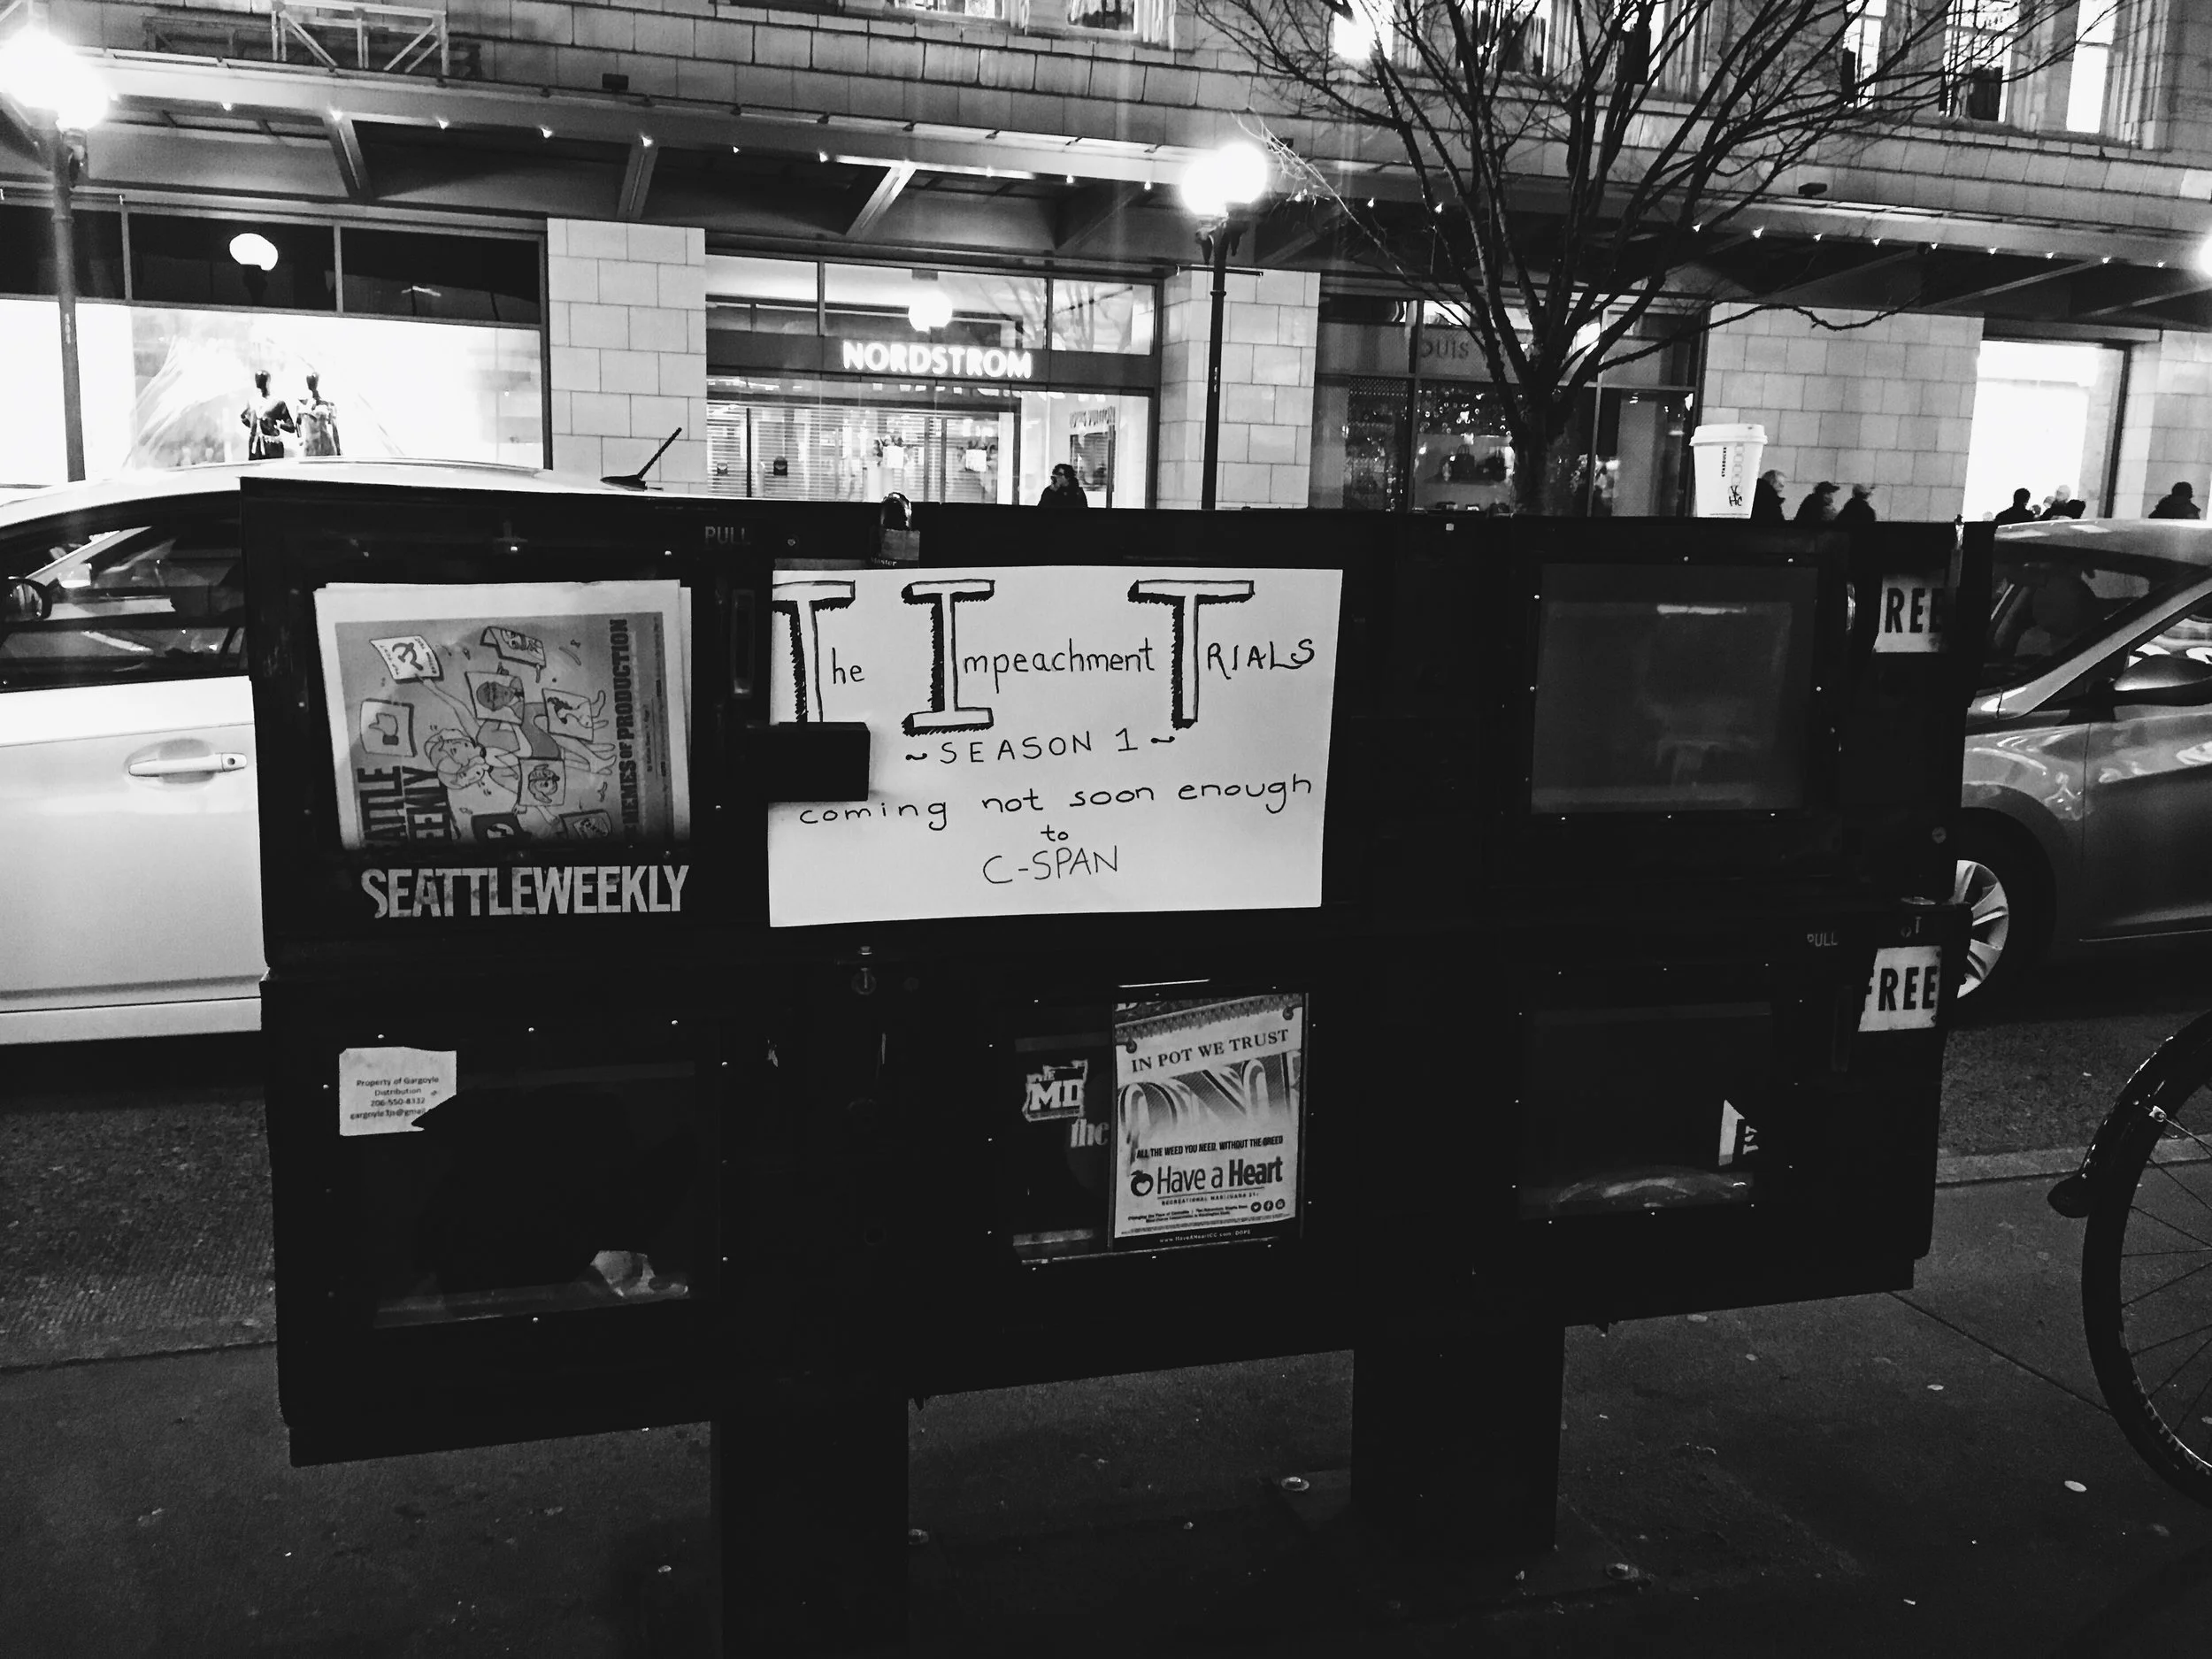 NORDSTROM
OUIS
PULL
The Impeachment TRIALS
~SEASON 1~
coming not soon enough
to
C-SPAN
ATTLE
EEKLY
MEMES OF PRODUCTION
SEATTLEWEEKLY
REE
PULL
FREE
Property of Gargoyle
Distribution
206-550-8332
MD
the
IN POT WE TRUST
ALL THE WEED YOU NEED. WITHOUT THE GREED
Have a Heart
RECREATIONAL MARIJUANA 21+